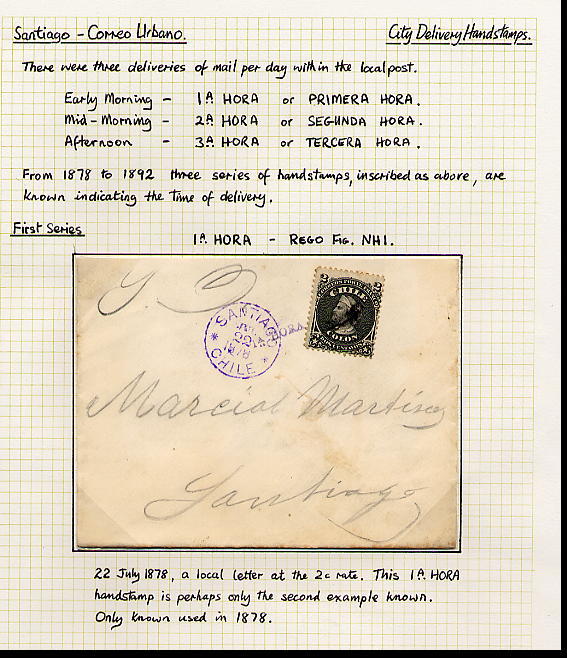 Santiago - Correo Urbano.
City Delivery Handstamps.
There were three deliveries of mail per day within the local post.
Early Morning - 1ª HORA or PRIMERA HORA.
Mid-Morning - 2ª HORA or SEGUNDA HORA.
Afternoon - 3ª HORA or TERCERA HORA.
From 1878 to 1892 three series of handstamps, inscribed as above, are
known indicating the time of delivery.
First Series
1ª HORA - REGO FIG. NH1.
S. D
2 2
CHILE
COLON
SANTIAGO
JUL
22
1878
CHILE
HORA
Marcial Martinez
Santiago
22 July 1878, a local letter at the 2c rate. This 1ª HORA
handstamp is perhaps only the second example known.
Only known used in 1878.